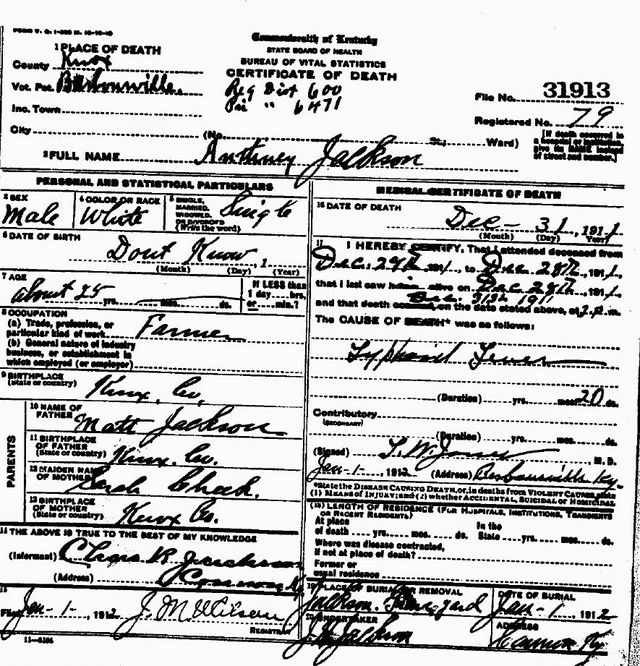 FORM V. S. 1-
Commonwealth of Kentucky
STATE BOARD OF HEALTH
BUREAU OF VITAL STATISTICS
CERTIFICATE OF DEATH
1 PLACE OF DEATH
County Knox
Vot. Pct. Barbourville
Inc. Town
City
Reg Dist 600
Pri " 6471
File No. 31913
Registered No. 79
(No. St.; Ward)
[If death occurred in a hospital or institution give its NAME instead of street and number.]
2 FULL NAME Anthney Jackson
PERSONAL AND STATISTICAL PARTICULARS
3 SEX Male
4 COLOR OR RACE White
5 SINGLE, MARRIED, WIDOWED, OR DIVORCED (Write the word) Single
6 DATE OF BIRTH
Dont Know, 1
(Month) (Day) (Year)
7 AGE
about 25 yrs. mos. ds.
If LESS than 1 day hrs. or min.?
8 OCCUPATION
(a) Trade, profession, or particular kind of work Farmer
(b) General nature of industry business, or establishment in which employed (or employer)
9 BIRTHPLACE
(State or country) Knox Co.
PARENTS
10 NAME OF FATHER Matt Jackson
11 BIRTHPLACE OF FATHER (State or country) Knox Co.
12 MAIDEN NAME OF MOTHER Sarah Cheek
13 BIRTHPLACE OF MOTHER (State or country) Knox Co.
14 THE ABOVE IS TRUE TO THE BEST OF MY KNOWLEDGE
(Informant) Chas R. Jackson
(Address)
15
Filed Jan-1-, 1912 J. M. Wilson
REGISTRAR
MEDICAL CERTIFICATE OF DEATH
16 DATE OF DEATH
Dec 31, 1911
(Month) (Day) (Year)
17 I HEREBY CERTIFY, That I attended deceased from
Dec. 29th 1911, to Dec 28th, 1911,
that I last saw him alive on Dec 28th, 1911,
Dec. 31st 1911
and that death occurred, on the date stated above, at 2 P.m.
The CAUSE OF DEATH* was as follows:
Typhoid Fever
(Duration) yrs. mos. 20 ds.
Contributory
(SECONDARY)
(Duration) yrs. mos. ds.
(Signed) M. D.
Jan-1-1912 (Address) Barbourville Ky.
*State the DISEASE CAUSING DEATH, or, in deaths from VIOLENT CAUSES, state (1) MEANS OF INJURY; and (2) whether ACCIDENTAL, SUICIDAL or HOMICIDAL
18 LENGTH OF RESIDENCE (FOR HOSPITALS, INSTITUTIONS, TRANSIENTS OR RECENT RESIDENTS)
At place of death yrs. mos. ds. In the State yrs. mos. ds.
Where was disease contracted, if not at place of death?
Former or usual residence
19 PLACE OF BURIAL OR REMOVAL
Jackson Graveyard
DATE OF BURIAL
Jan-1-1912
20 UNDERTAKER
Jackson
ADDRESS
Cannon Ky.